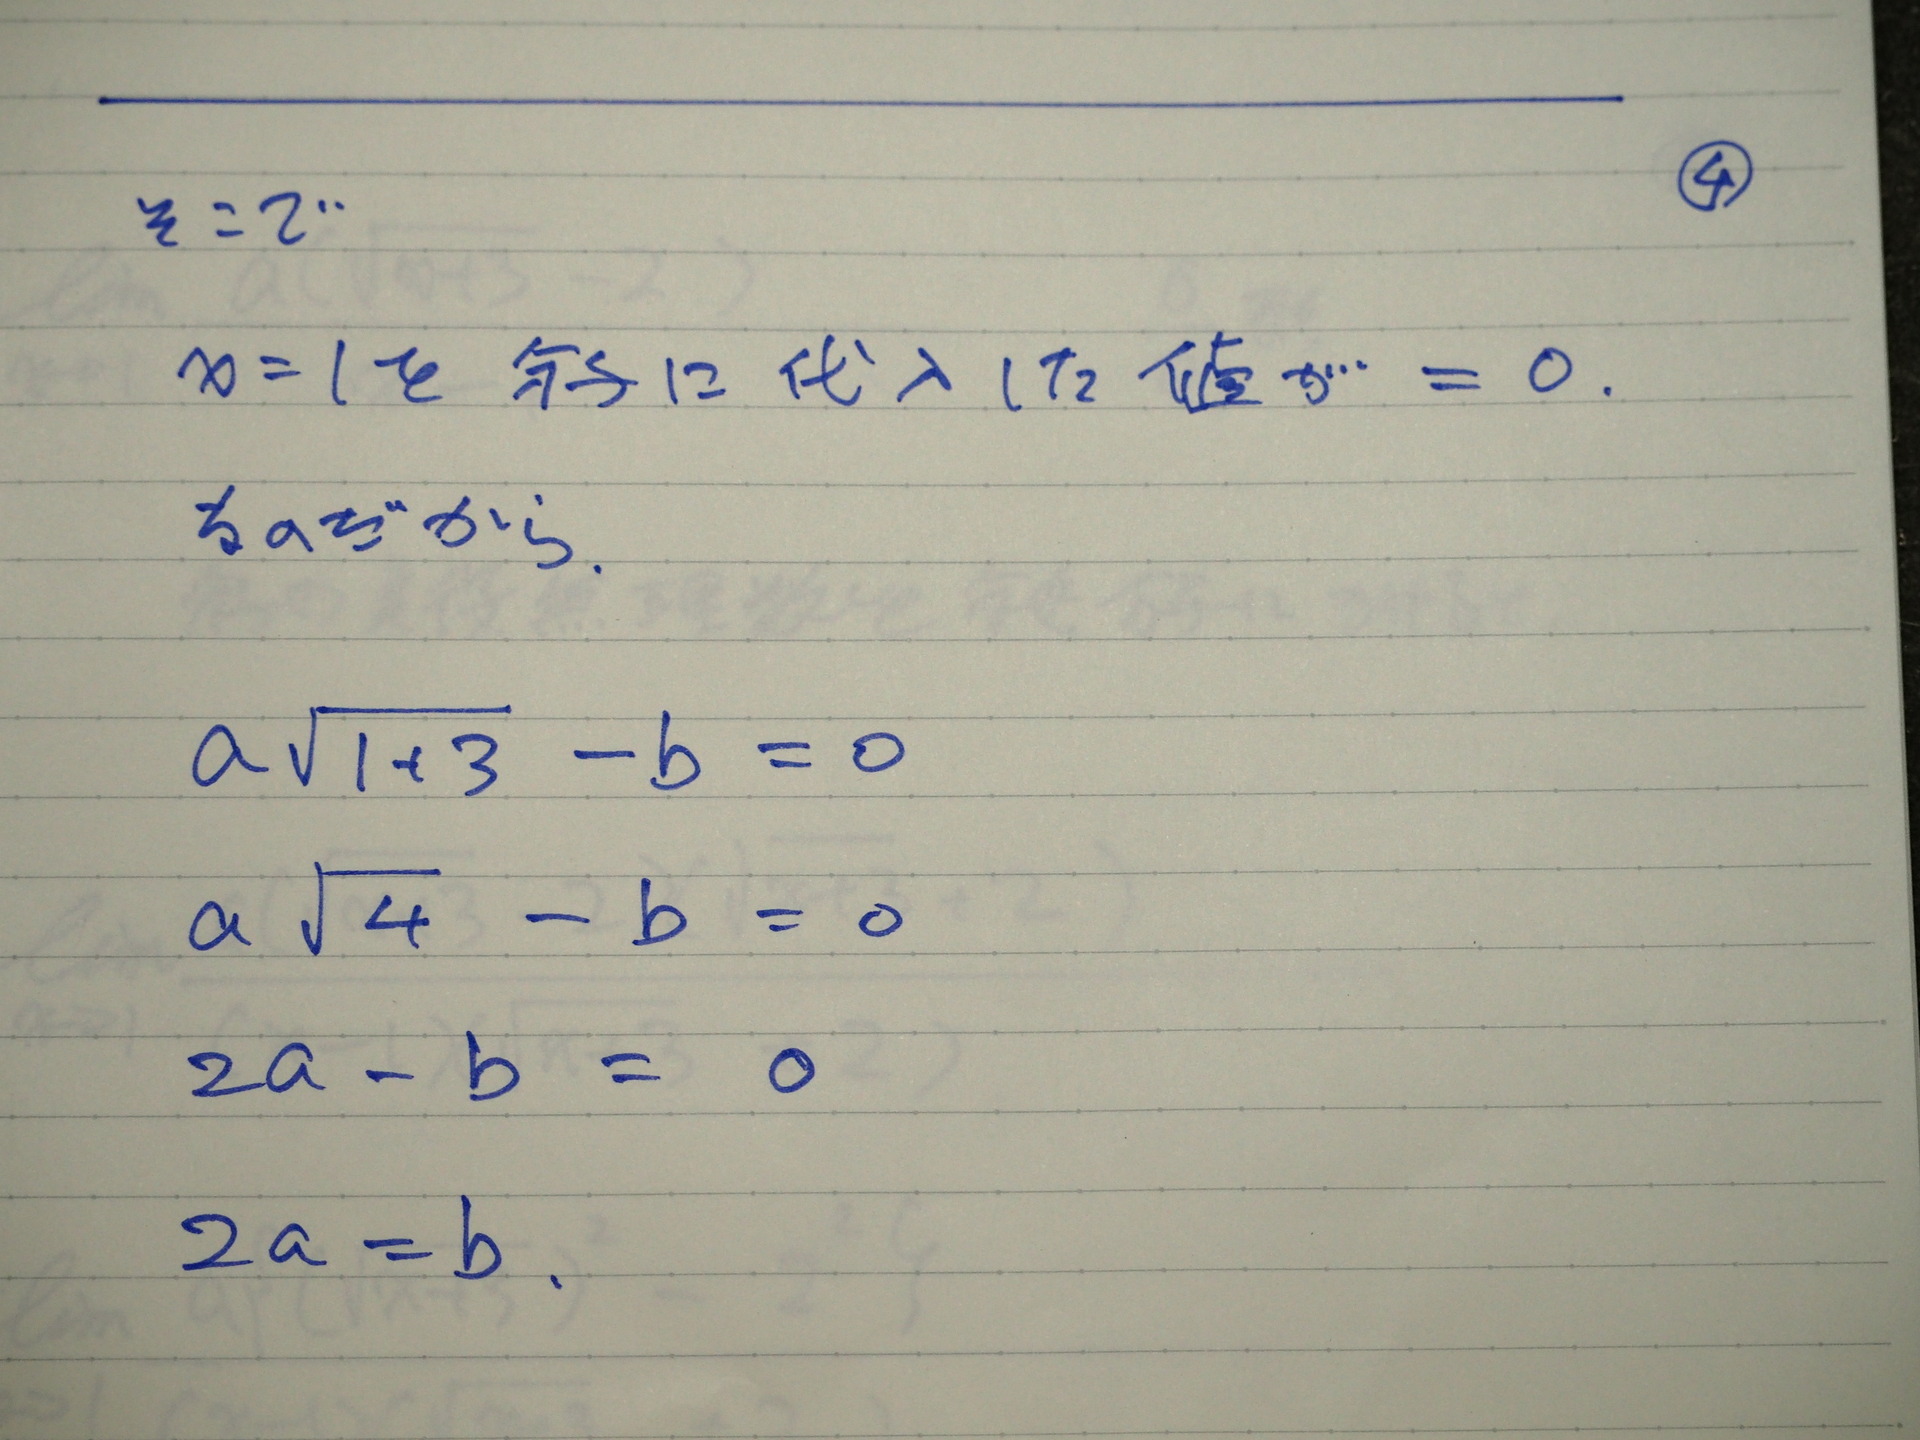 ④
そこで
x=1を分子に代入した値が = 0.
なのだから.
a√1+3 - b = 0
a√4 - b = 0
2a - b = 0
2a = b.